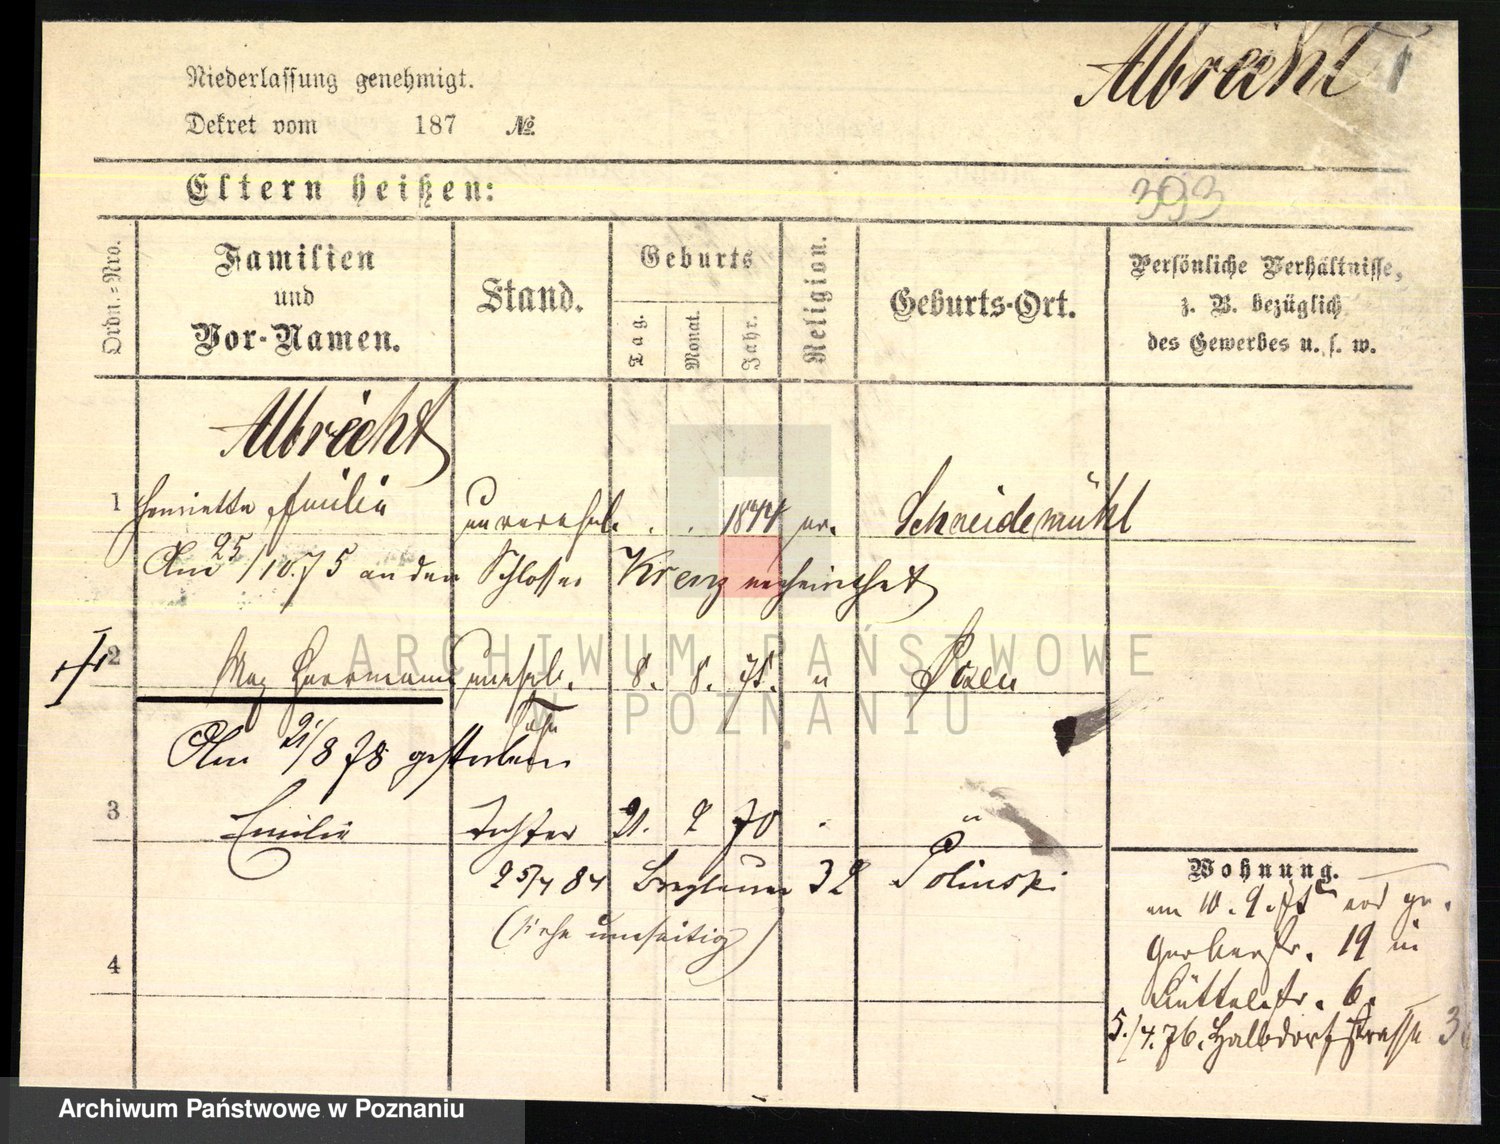 Albrecht
Niederlassung genehmigt.
Dekret vom 187 №
Eltern heißen:
393
Ordn.-Nro.
Familien
und
Vor-Namen.
Stand.
Geburts
Tag.
Monat.
Jahr.
Religion.
Geburts-Ort.
Persönliche Verhältnisse,
z. B. bezüglich
des Gewerbes u. s. w.
Albrecht
1 Henriette Emilie unverehel. . . 1844 ev. Schneidemühl
Am 25/10.75 an den Schlosser Krenz verheirathet
2 Max Herrmann unehel. 8. 8. 75. " Posen
Sohn
Am 21/8 78 gestorben
3 Emilie Tochter 21. 2 70 . "
25/4 84 Breslauer 32 Polinski
(siehe umseitig)
4
Wohnung.
am 10.9.75 von gr.
Gerberstr. 19 in
Büttelstr. 6.
5./4.76. Halbdorfstrasse
ARCHIWUM PAŃSTWOWE
W POZNANIU
Archiwum Państwowe w Poznaniu